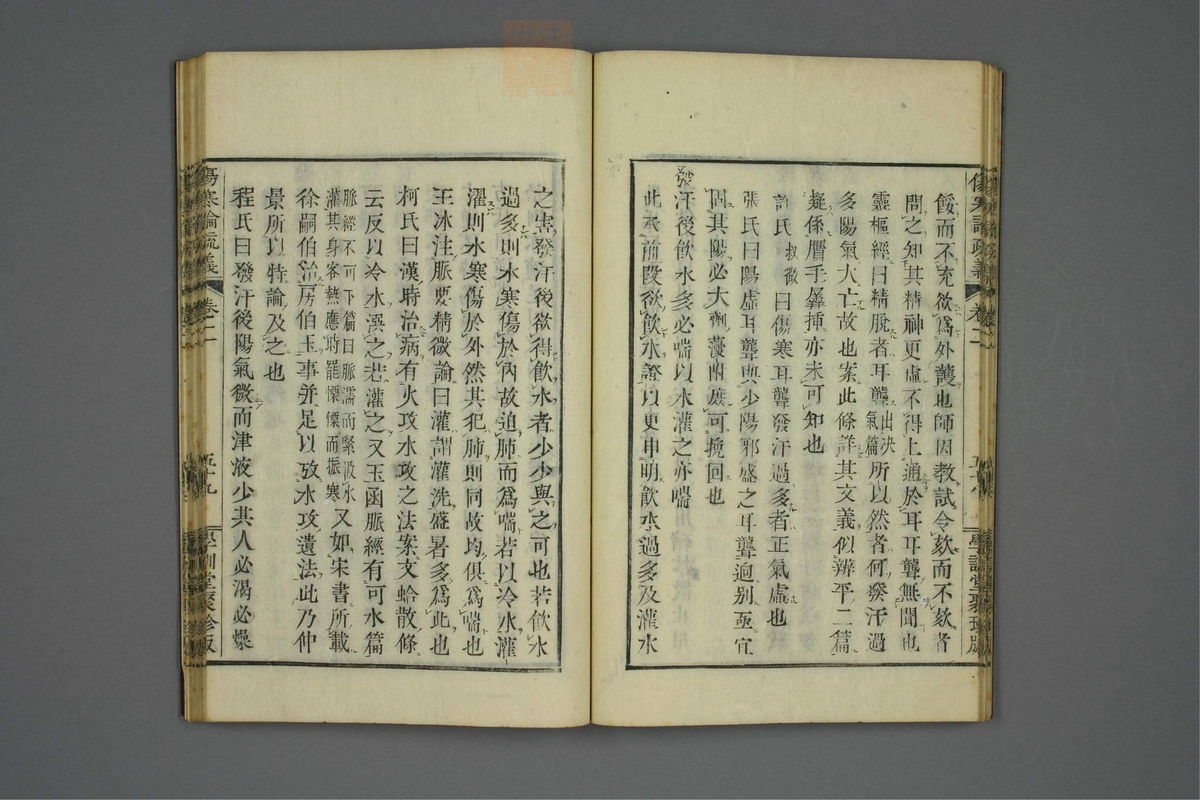 餒而不充欲爲外護也師因教試令欬而不欬者
問之知其精神更虛不得上通於耳耳聾無聞也
靈樞經曰精脫者耳聾出決氣篇所以然者何發汗過
多陽氣大亡故也案此條詳其文義似辨平二篇
擬係贋手羼揷亦未可知也
許氏叔微曰傷寒耳聾發汗過多者正氣虛也
張氏曰陽虛耳聾與少陽邪盛之耳聾逈别亟宜
固其陽必大劑蔆附庶可挽回也
發汗後飮水多必喘以水灌之亦喘
此承前段欲飮水證以更申明飮水過多及灌水
傷寒論疏義
卷二
五十八
學訓堂聚珍版
之害發汗後欲得飮水者少少與之可也若飮水
過多則水寒傷於內故迫肺而爲喘若以冷水灌
濯則水寒傷於外然其犯肺則同故均俱爲喘也
王冰注脈要精微論曰灌謂灌洗盛暑多爲此也
柯氏曰漢時治病有火攻水攻之法案文蛤散條
云反以冷水潠之若灌之又玉函脈經有可水篇
脈經不可下篇曰脈濡而緊汲水灌其身客熱應時罷慄慄而振寒又如宋書所載
徐嗣伯治房伯玉事并足以攷水攻遺法此乃仲
景所以特論及之也
程氏曰發汗後陽氣微而津液少其人必渴必燥
傷寒論疏義
卷二
五十九
學訓堂聚珍版